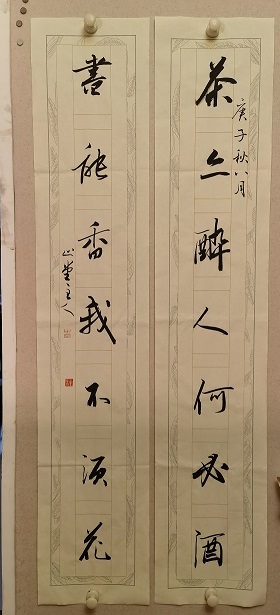 茶亦醉人何必酒
庚子秋八月
書能香我不须花
山堂主人